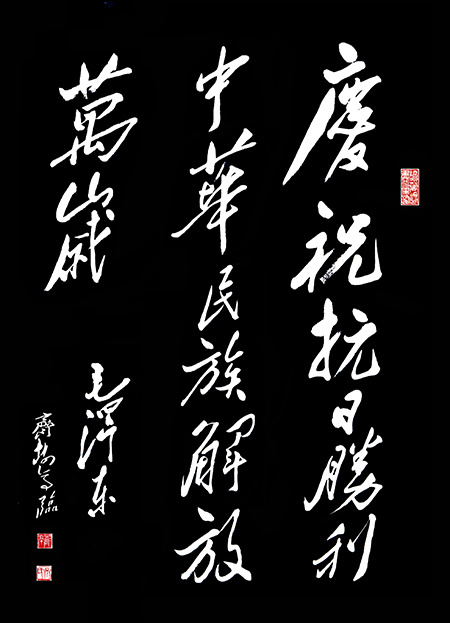 慶祝抗日勝利
中華民族解放
萬歲
毛澤东
臨